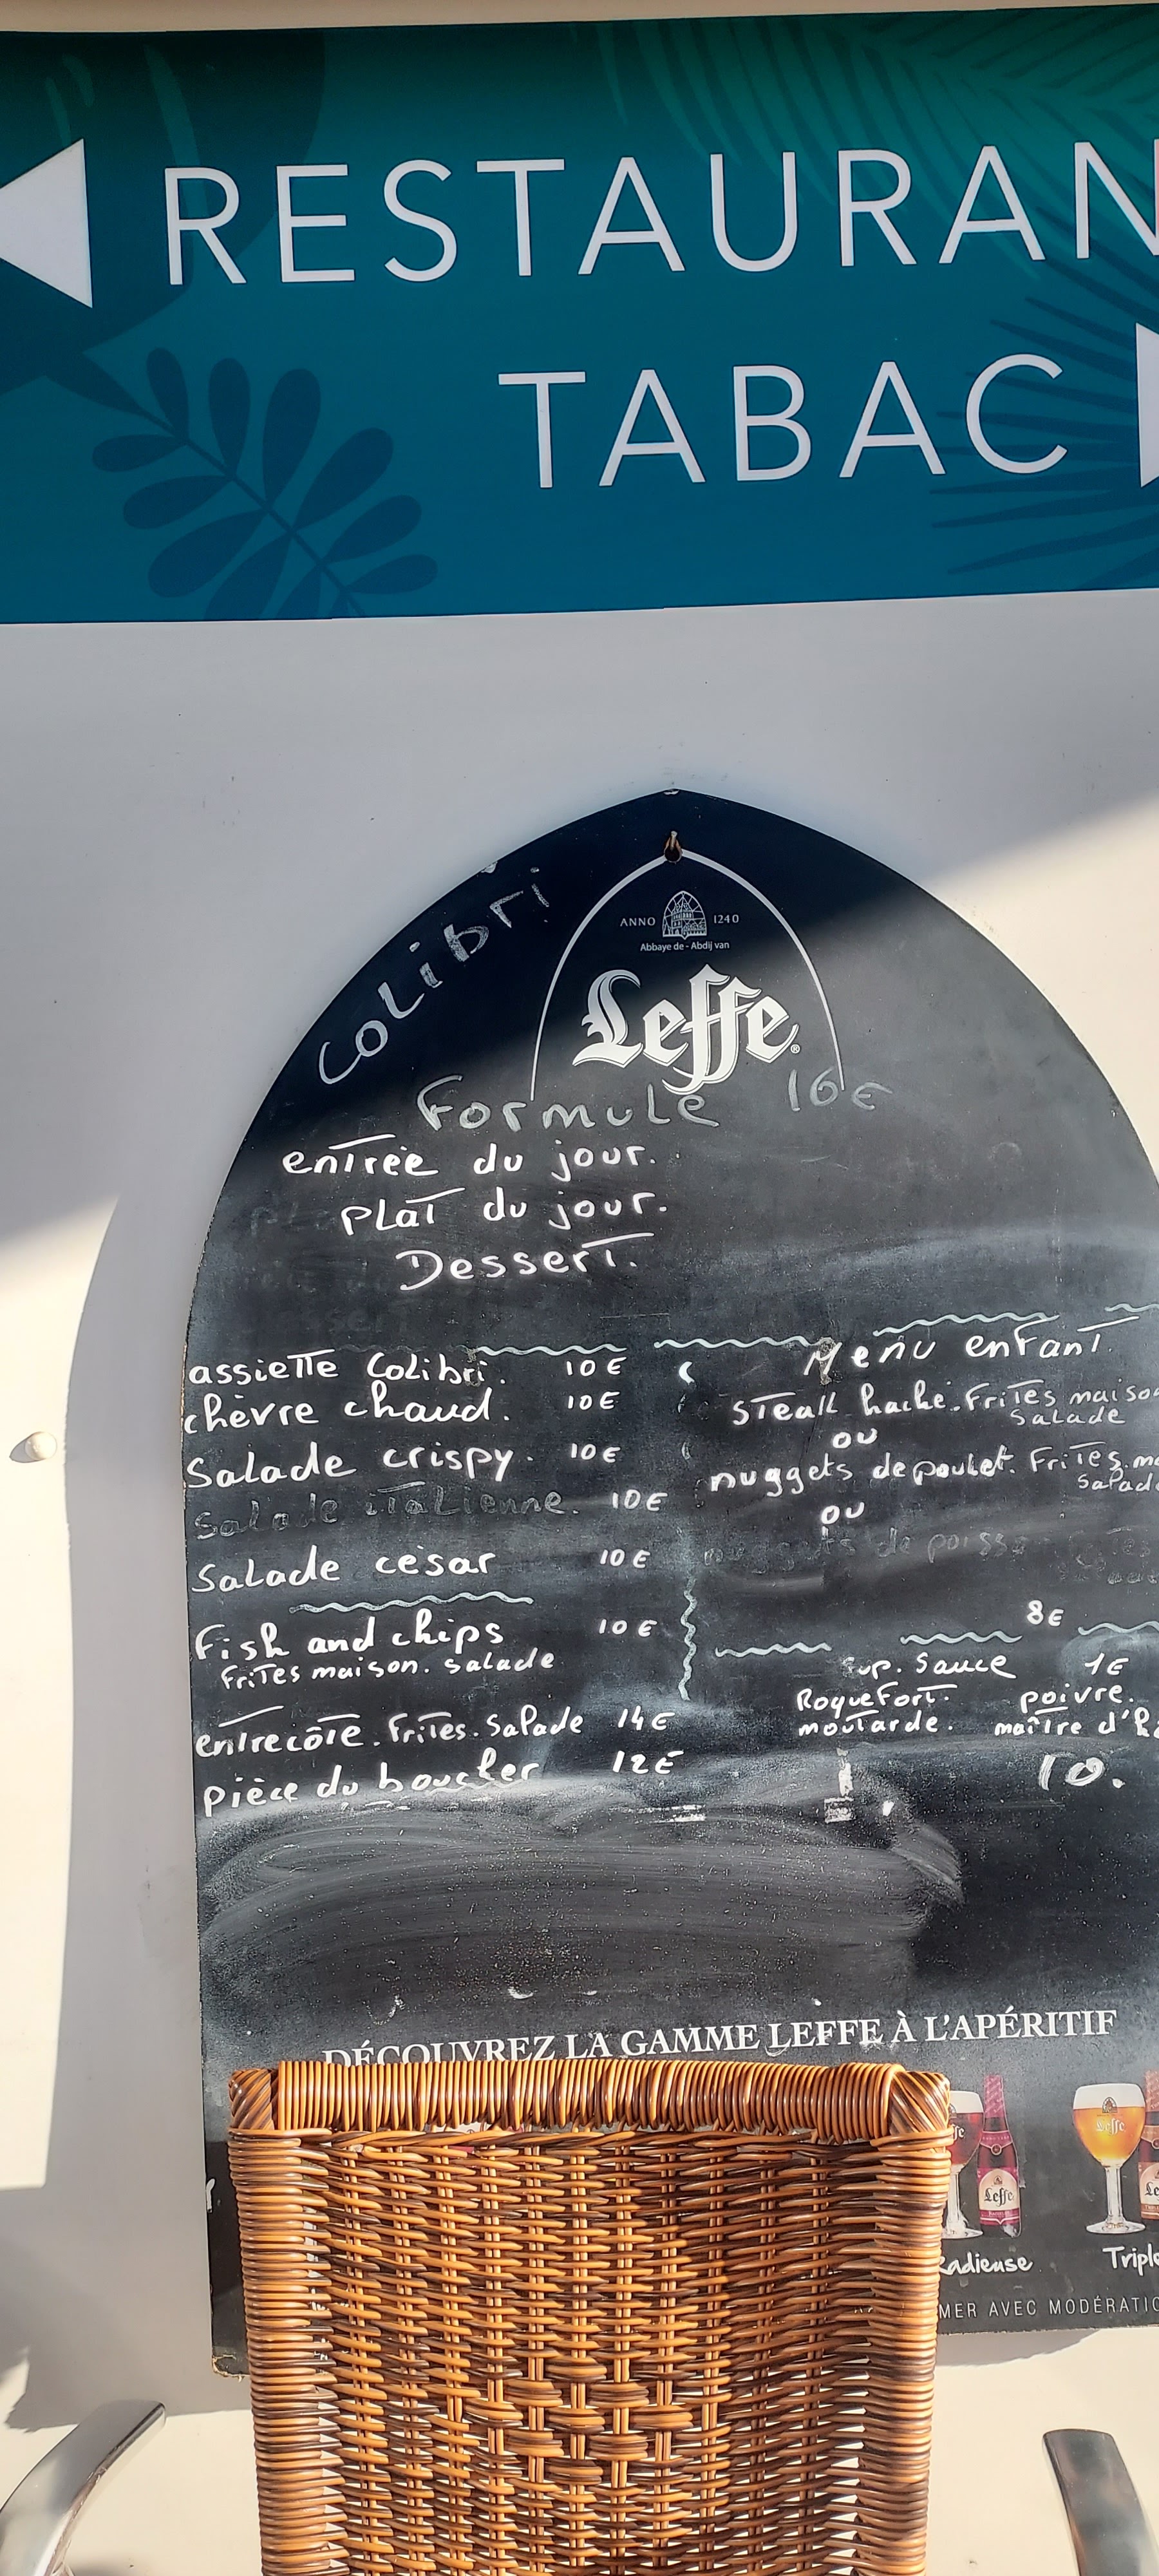 RESTAURAN
TABAC
coLibri
ANNO 1240
Abbaye de - Abdij van
Leffe®
FormuLe 16€
entrée du jour.
pLaT du jour.
DesserT.
assieTTe Colibri. 10€
chèvre chaud. 10€
Salade crispy. 10€
Salade iTalienne. 10€
SaLade césar 10€
Fish and chips 10€
FriTes maison. salade
entrecôte. FriTes. Salade 14€
pièce du boucher 12€
Menu enFanT.
STeak haché. FriTes maiso
Salade
ou
nuggets de poulet. FriTes. ma
Salad
ou
nuggets de poisso
8€
Sup. Sauce 1€
RoqueForT. poivre.
mouTarde. maître d'h
10.
DÉCOUVREZ LA GAMME LEFFE À L'APÉRITIF
Leffe
Leffe
Radieuse Triple
MER AVEC MODÉRATIO